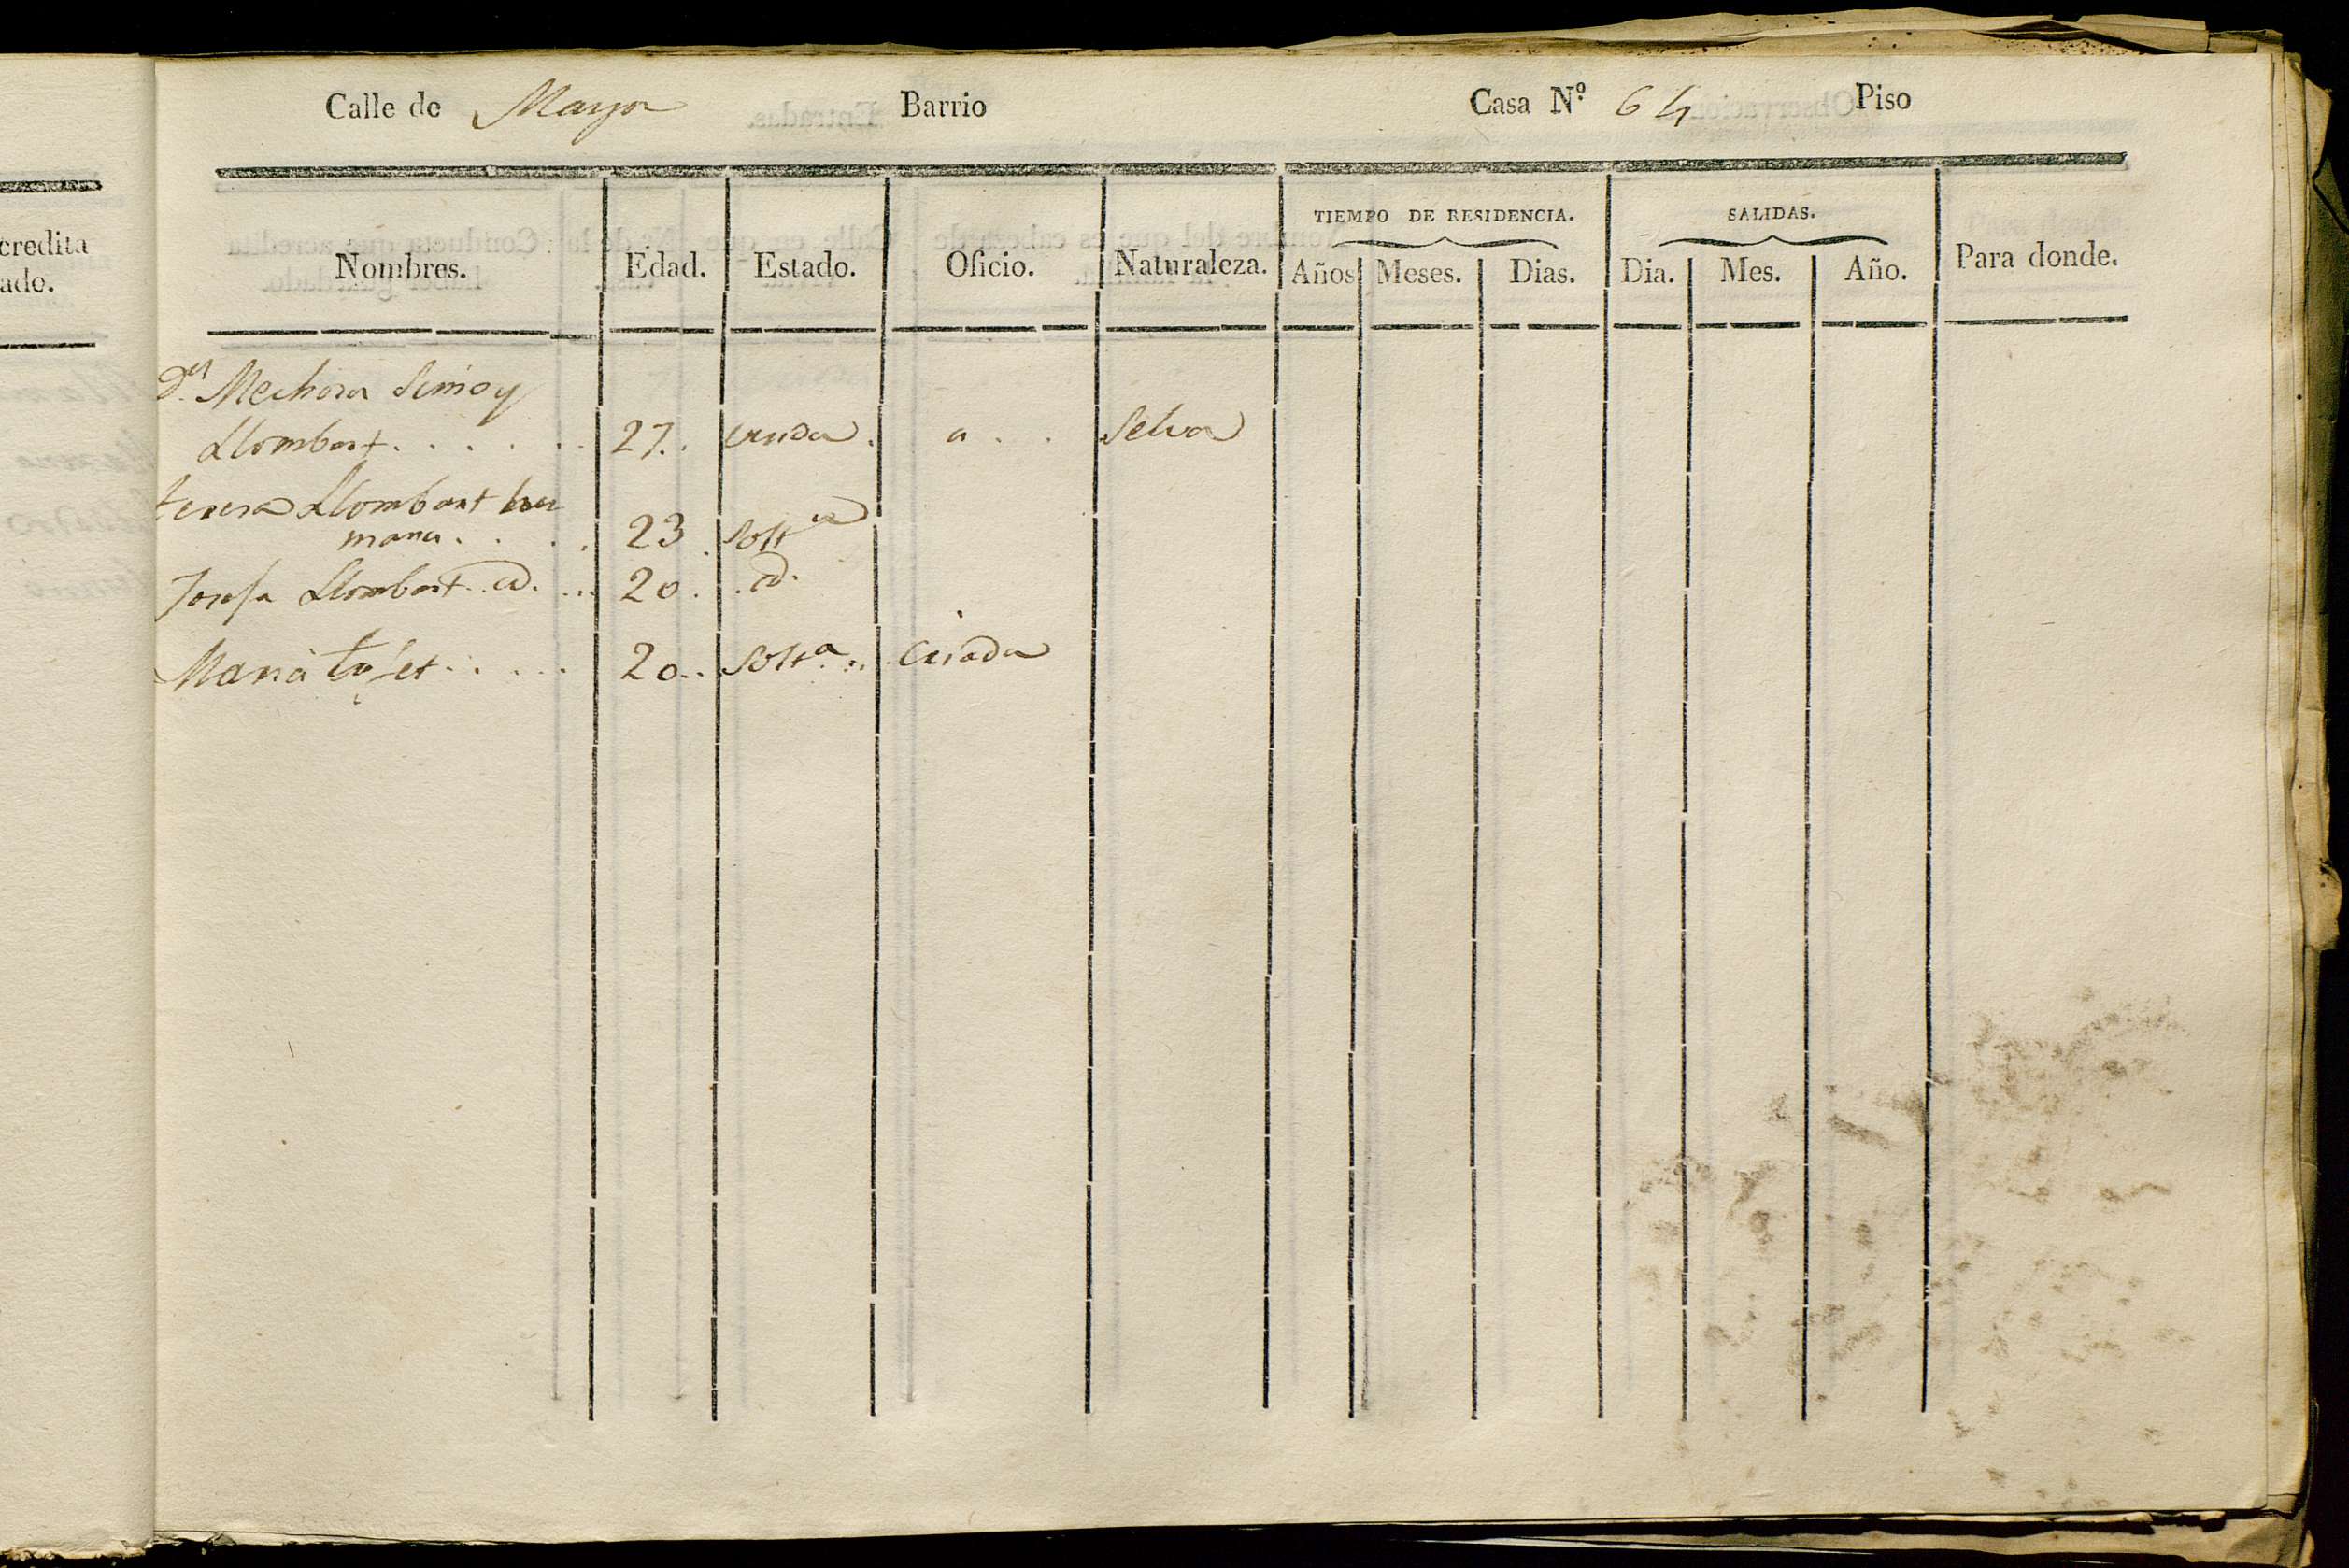 credita
ado.
Calle de Mayor Barrio Casa Nº 64 Piso
TIEMPO DE RESIDENCIA. SALIDAS.
Nombres. Edad. Estado. Oficio. Naturaleza. Años Meses. Dias. Dia. Mes. Año. Para donde.
Dª Mechora Simo y
Llombart 27. viuda. a Selva
teresa Llombart her
mana 23 Soltª
Josefa Llombart id. 20. id.
Maria 20 Soltª Criada